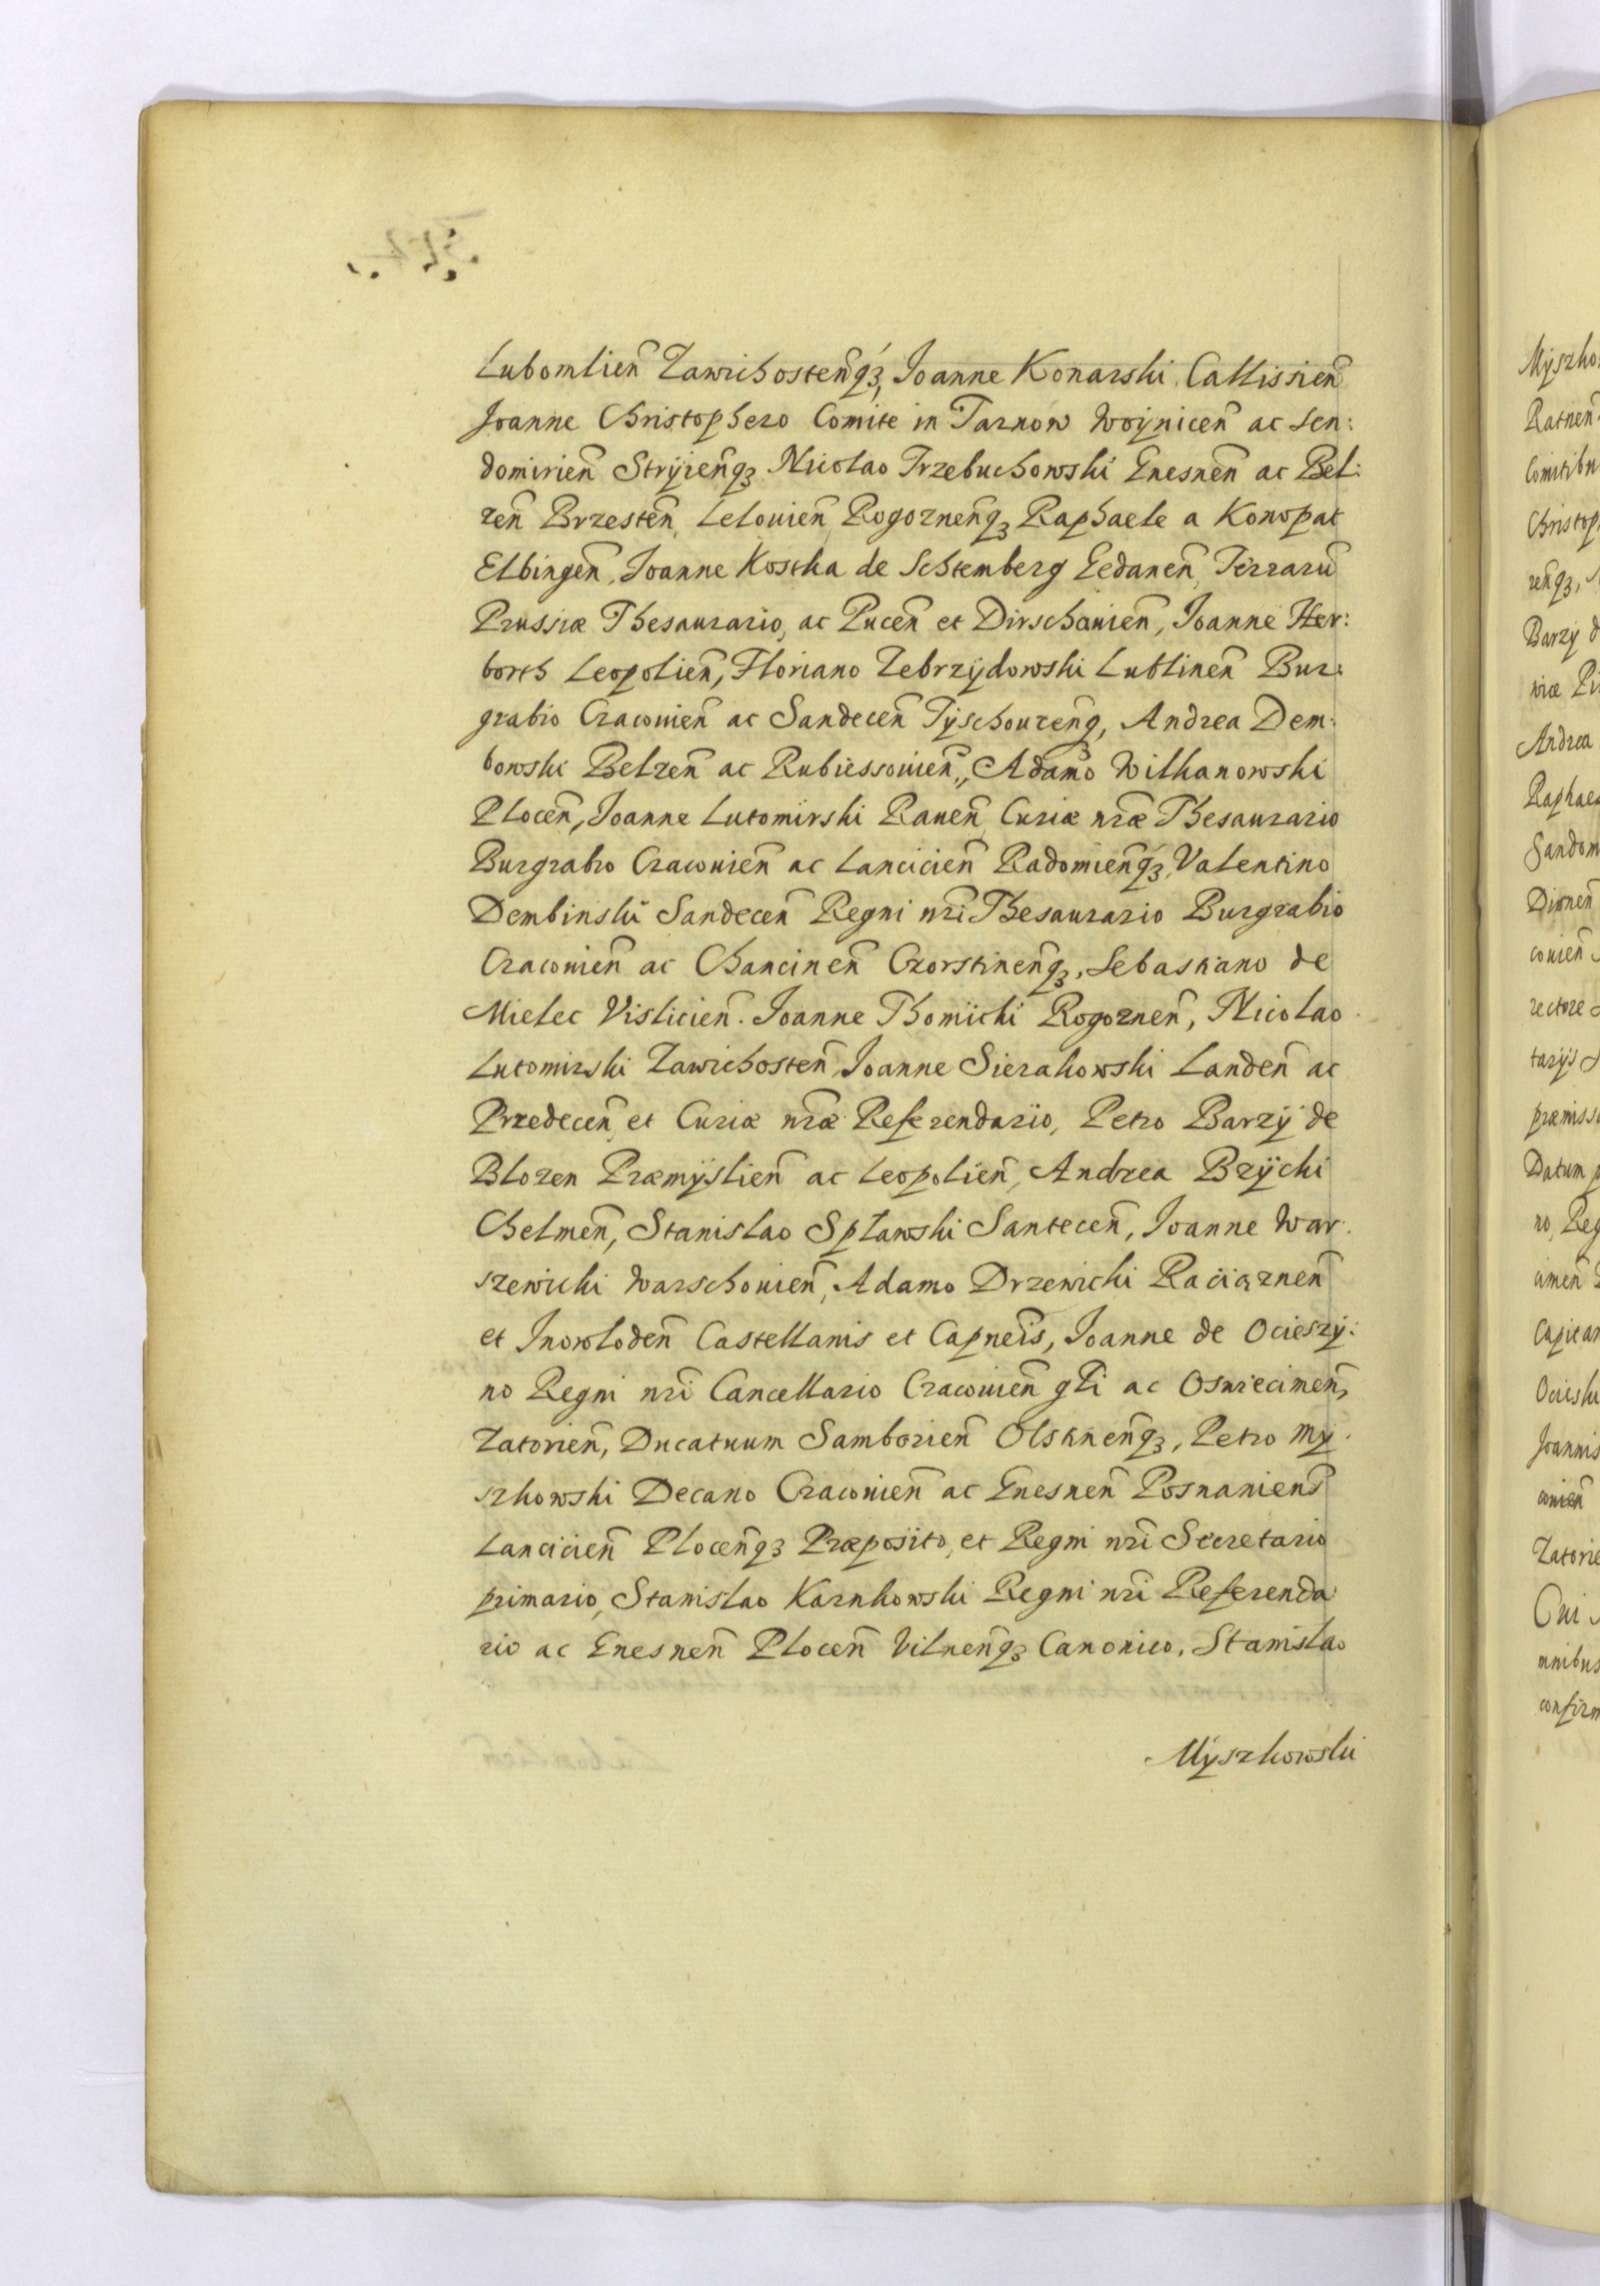 Lubomlien̄ Zawichosten̄qꝫ, Joanne Konarski Callissien̄
Joanne Christophero Comite in Tarnow Woÿnicen̄ ac Sen:
domirien̄ Strÿien̄qꝫ Nicolao Trzebuchowski Gnesnen̄ ac Bel:
zen̄ Brzesten̄, Lelouien̄, Rogoznen̄qꝫ Raphaele a Konopat
Elbingen̄, Joanne Kostka de Schtemberg Gedanen̄, Terrarū
Prussiæ Thesaurario, ac Pucen̄ et Dirschauien̄, Joanne Her:
borth Leopolien̄, Floriano Zebrzÿdowski Lublinen̄ Bur:
grabio Cracouien̄ ac Sandecen̄ Pÿschouren̄qꝫ, Andrea Dem:
bowski Belzen̄ ac Rubiessouien̄, Adamo Wilkanowski
Plocen̄, Joanne Lutomirski Rauen̄ Curiæ nr̄æ Thesaurario
Burgrabio Cracouien̄ ac Lancicien̄ Radomien̄qꝫ, Valentino
Dembinski Sandecen̄ Regni nr̄i Thesaurario Burgrabio
Cracouien̄ ac Chancinen̄ Czorstinen̄qꝫ, Sebastiano de
Mielec Vislicien̄. Joanne Thomicki Rogoznen̄, Nicolao
Lutomirski Zawichosten̄ Joanne Sierakowski Landen̄ ac
Przedecen̄ et Curiæ nr̄æ Referendario, Petro Barzÿ de
Blozen Præmÿslien̄ ac Leopolien̄, Andrea Brzÿcki
Chelmen̄, Stanislao Splawski Santecen̄, Joanne War
szewicki Warschouien̄, Adamo Drzewicki Raciąznen̄
et Inowloden̄ Castellanis et Capneis̄, Joanne de Ocieszÿ:
no Regni nr̄i Cancellario Cracouien̄ gl̄i ac Oswiecimen̄,
Zatorien̄, Ducatuum Samborien̄ Olstinen̄qꝫ, Petro Mÿ
szkowski Decano Cracouien̄ ac Gnesnen̄ Posnanien̄
Lancicien̄ Plocen̄qꝫ Præposito, et Regni nr̄i Secretario
primario, Stanislao Karnkowski Regni nr̄i Referenda
rio ac Gnesnen̄ Plocen̄ Vilnen̄qꝫ Canonico, Stanislao
Mÿszkowski
Mÿszko
Ratnen̄
Comitibu
Christop
ren̄qꝫ,
Barzÿ d
Andrea
Raphae
Sandom
couien̄
rectore
tarÿs
præmiss
Datum p
no, Reg
Capitan
Ociesk
Joannis
couien̄
Zatorie
Cui
mnibus
confirm